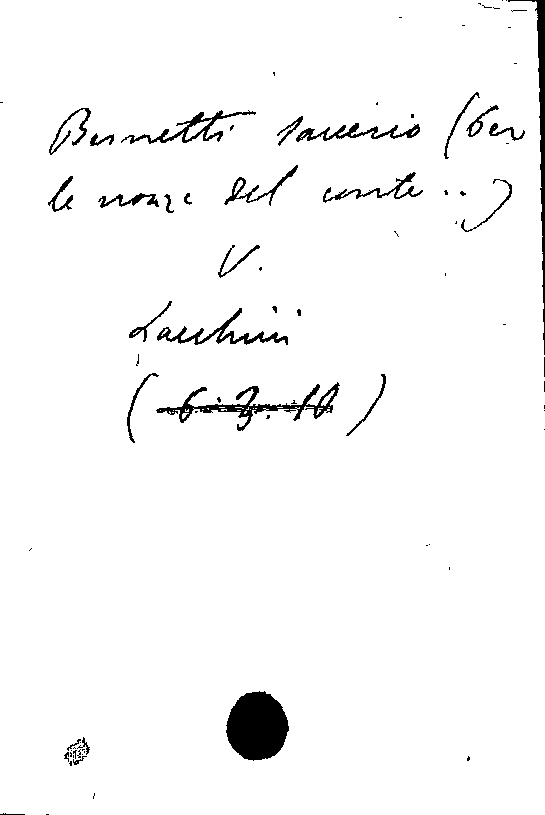 Bernetti Saverio (Per
le nozze del conte ..)
V.
Zacchini
(6. 3. 10)